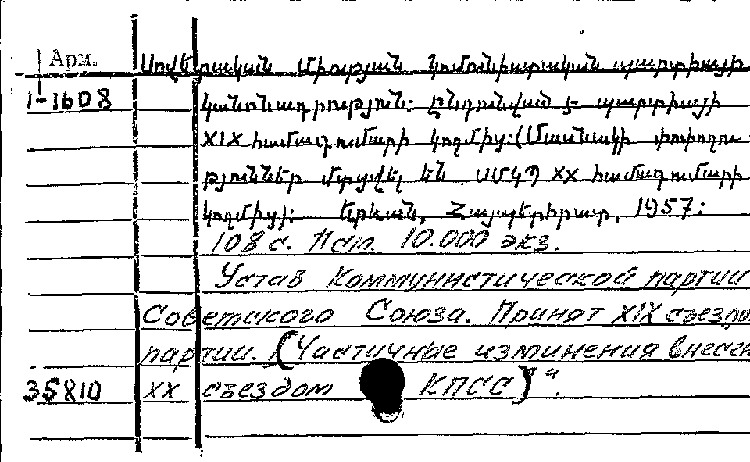 Арм.
Սովետական Միության կոմունիստական պարտիայի
1-1608
կանոնադրություն: Ընդունված է պարտիայի
XIX համագումարի կողմից:(Մասնակի փոփոխու
թյուններ մտցվել են ՍՄԿՊ XX համագումարի
կողմից): Երևան, Հայպետհրատ, 1957:
108 с. 10.000 экз.
Устав Коммунистической партии
Советского Союза. Принят XIX съездом
партии. (Частичные изминения внесен
35810
XX съездом КПСС)".